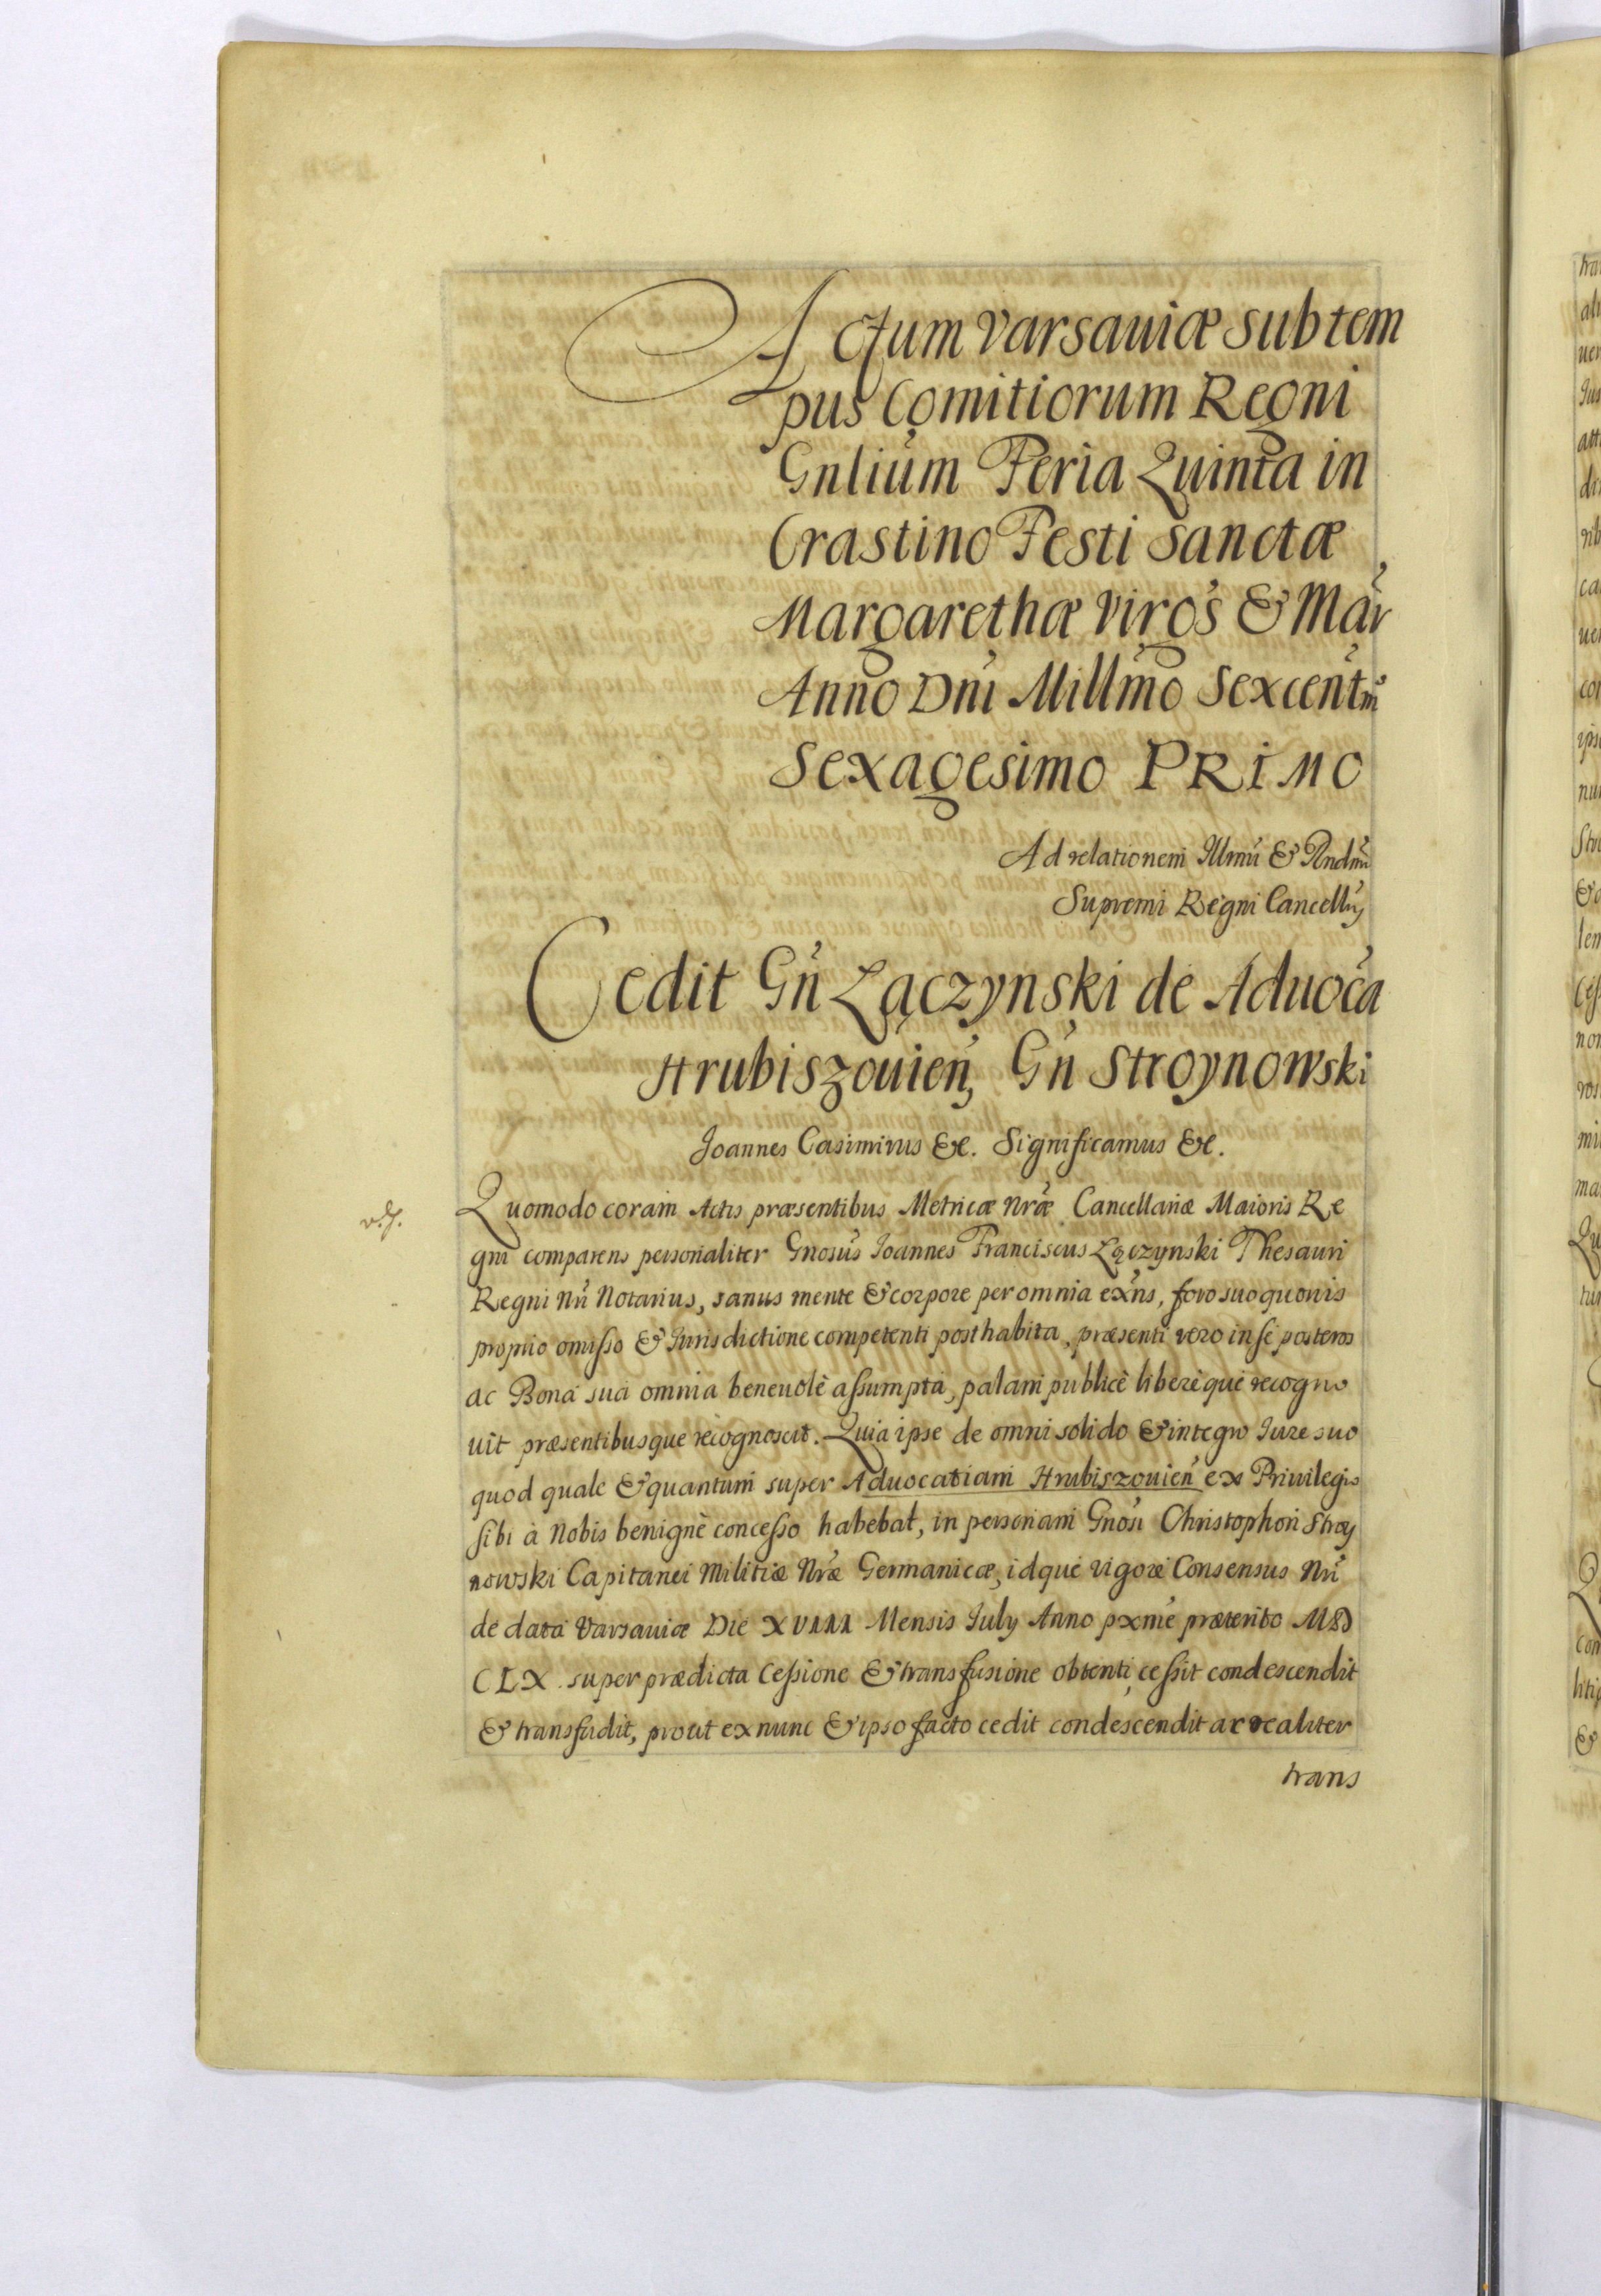 Actum Varsauiæ sub tem
pus Comitiorum Regni
Gnlium Feria Quinta in
Crastino Festi Sanctæ
Margarethæ Virgs & Mar
Anno Dni Millmo Sexcentm̃o
Sexagesimo PRIMO
Ad relationem Illmi & Rndmi
Supremi Regni Cancellrij
Cedit Gn Łączynski de Aduoca
Hrubiszouien, Gn Stroynowski
Joannes Casimirus &c. Significamus &c.
Quomodo coram Actis præsentibus Metricæ Nræ Cancellariæ Maioris Re
gni comparens personaliter Gnosus Joannes Franciscus Łączynski Thesauri
Regni Nri Notarius, sanus mente & corpore per omnia exns, foro suo quouis
proprio omisso & Jurisdictione competenti posthabita, præsenti vero in se posteros
ac Bona sua omnia beneuolè assumpta, palam publicè liberèque recogno
uit præsentibusque recognoscit. Quia ipse de omni solido & integro Jure suo
quod quale & quantum super Aduocatiam Hrubiszouien ex Priuilegio
sibi à Nobis benignè concesso habebat, in personam Gnosi Christophori Stroy
nowski Capitanei Militiæ Nræ Germanicæ, idque vigore Consensus Nri
de data Varsauiæ Die XVIII Mensis July Anno pxme præterito MD
CLX super prædicta Cessione & transfusione obtenti, cessit condescendit
& transfudit, prout ex nunc & ipso facto cedit condescendit ac realiter
trans